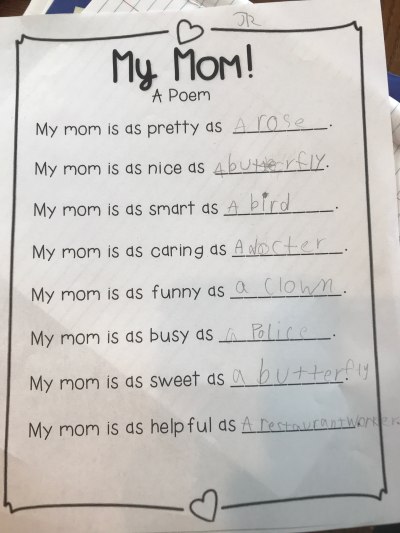 JR
My Mom!
A Poem
My mom is as pretty as A rose.
My mom is as nice as A butterfly.
My mom is as smart as A bird.
My mom is as caring as A docter.
My mom is as funny as a clown.
My mom is as busy as a Police.
My mom is as sweet as a butterfly.
My mom is as helpful as A restaurant worker.